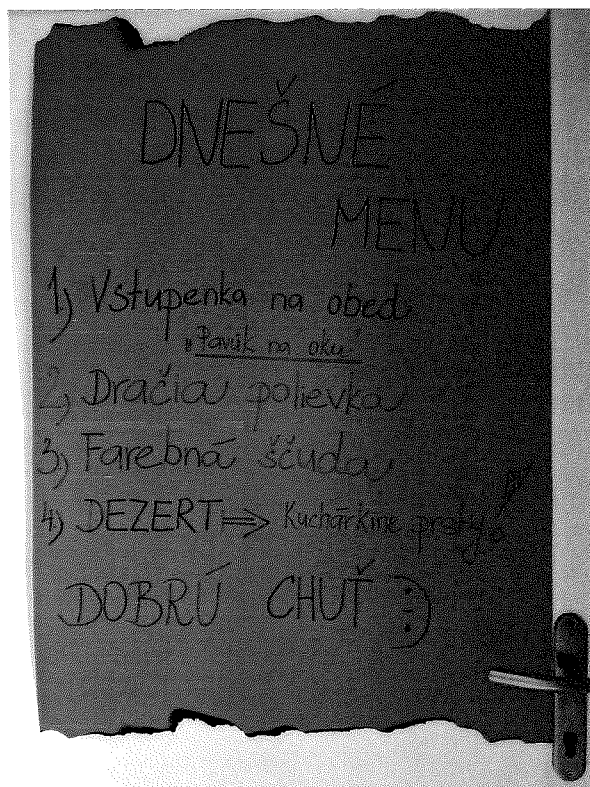 DNEŠNÉ
MENU
1) Vstupenka na obed
"Pavúk na oku"
2) Dračia polievka
3) Farebná ščuda
4) DEZERT => Kuchárkine prsty!
DOBRÚ CHUŤ :)